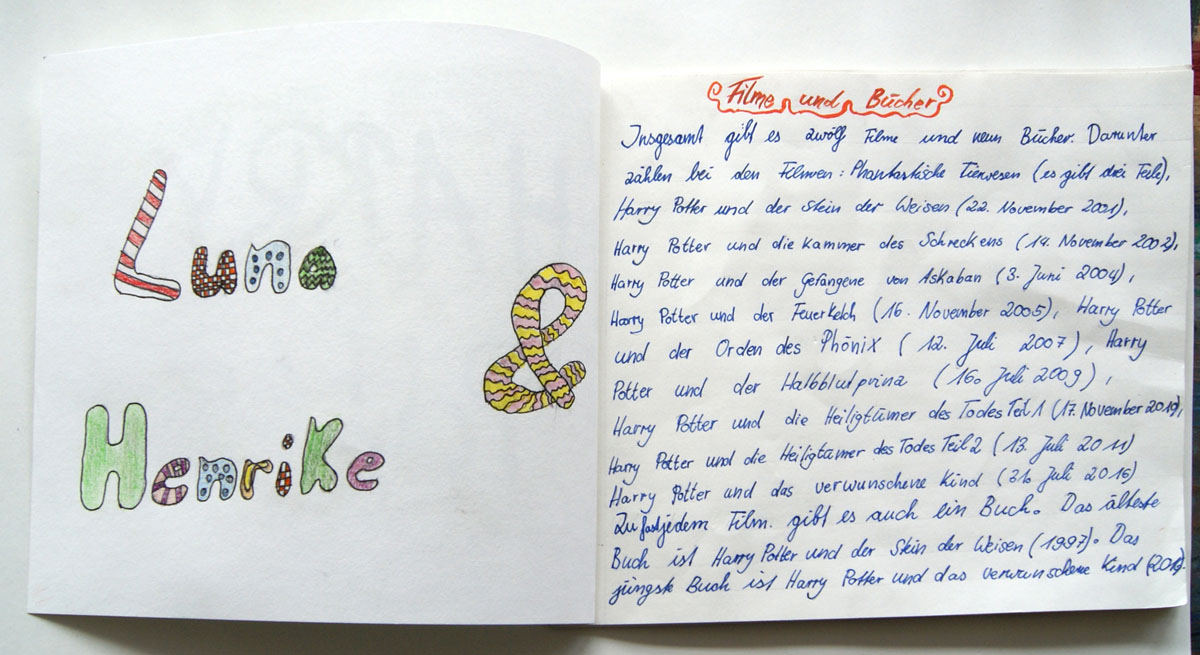 Luna
&
Henrike
Filme und Bücher
Insgesamt gibt es zwölf Filme und neun Bücher. Darunter
zählen bei den Filmen: Phantastische Tierwesen (es gibt drei Teile),
Harry Potter und der Stein der Weisen (22. November 2001),
Harry Potter und die Kammer des Schreckens (14. November 2002),
Harry Potter und der Gefangene von Askaban (3. Juni 2004),
Harry Potter und der Feuerkelch (16. November 2005), Harry Potter
und der Orden des Phönix (12. Juli 2007), Harry
Potter und der Halbblutprinz (16. Juli 2009),
Harry Potter und die Heiligtümer des Todes Teil 1 (17. November 2010),
Harry Potter und die Heiligtümer des Todes Teil 2 (13. Juli 2011)
Harry Potter und das verwunschene Kind (31. Juli 2016)
Zu fast jedem Film. gibt es auch ein Buch. Das älteste
Buch ist Harry Potter und der Stein der Weisen (1997). Das
jüngste Buch ist Harry Potter und das verwunschene Kind